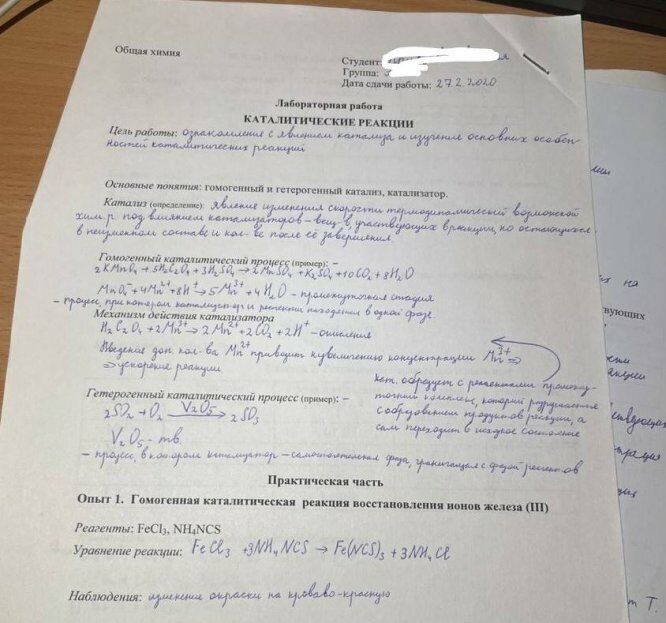 Общая химия
Студент:
Группа: 3
Дата сдачи работы: 27.2.2020
Лабораторная работа
КАТАЛИТИЧЕСКИЕ РЕАКЦИИ
Цель работы: ознакомление с явлением катализа и изучение основных особен-
ностей каталитических реакций
Основные понятия: гомогенный и гетерогенный катализ, катализатор.
Катализ (определение): явление изменения скорости термодинамической возможной
хим. р. под влиянием катализаторов – вещ-в, участвующих в реакции, но остающихся
в неизменном составе и кол-ве после её завершения.
Гомогенный каталитический процесс (пример): –
2KMnO₄ + 5H₂C₂O₄ + 3H₂SO₄ → 2MnSO₄ + K₂SO₄ + 10CO₂ + 8H₂O
MnO₄⁻ + 4Mn²⁺ + 8H⁺ → 5Mn³⁺ + 4H₂O – промежуточная стадия
– процесс, при котором катализатор и реагенты находятся в одной фазе.
Механизм действия катализатора
H₂C₂O₄ + 2Mn³⁺ → 2Mn²⁺ + 2CO₂ + 2H⁺ – окисление
Введение доп. кол-ва Mn²⁺ приводит к увеличению концентрации Mn³⁺ ⇒
⇒ ускорение реакции
кат. образует с реагентами промежу-
точный комплекс, который разрушается
с образованием продуктов реакции, а
сам переходит в исходное состояние
Гетерогенный каталитический процесс (пример): –
2SO₂ + O₂ V₂O₅→ 2SO₃
V₂O₅ – тв.
– процесс, в котором катализатор – самостоятельная фаза, граничащая с фазой реагентов
Практическая часть
Опыт 1. Гомогенная каталитическая реакция восстановления ионов железа (III)
Реагенты: FeCl₃, NH₄NCS
Уравнение реакции: FeCl₃ + 3NH₄NCS → Fe(NCS)₃ + 3NH₄Cl
Наблюдения: изменение окраски на кроваво-красную
их на
твующих
т Т.